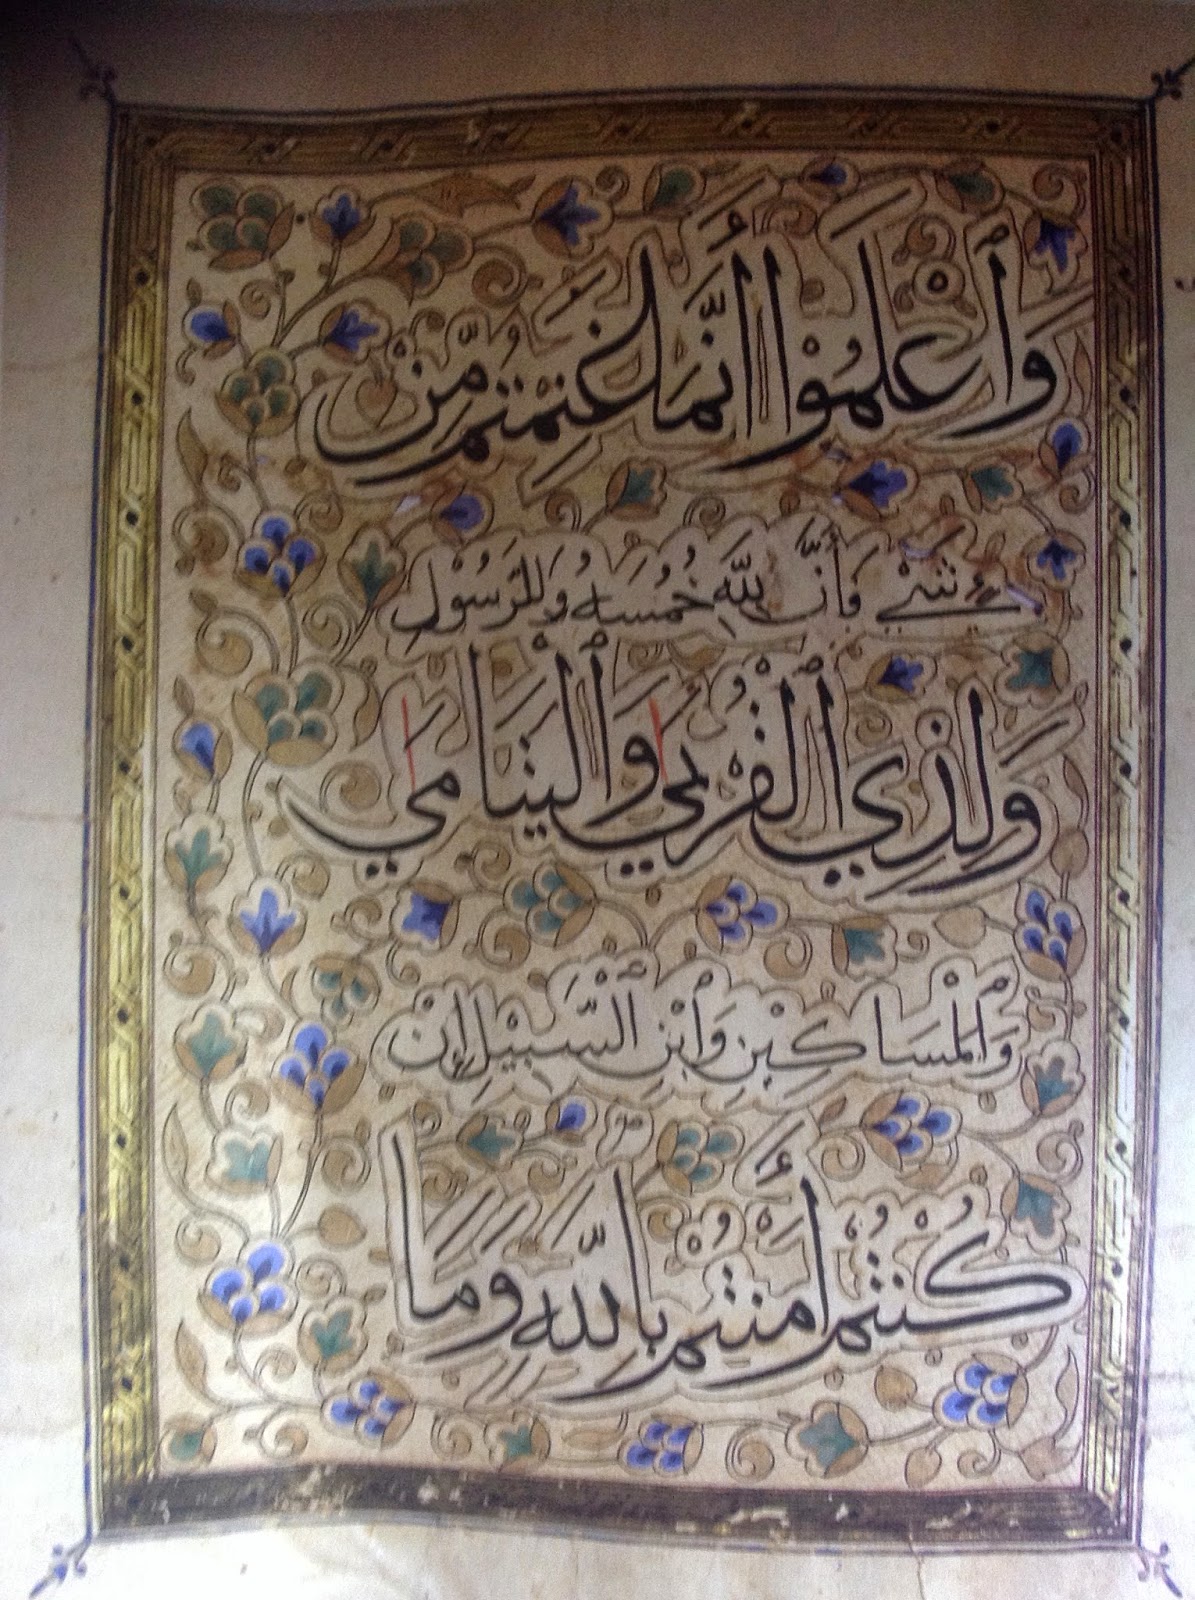 وَٱعْلَمُوْا أَنَّمَا غَنِمْتُمْ مِّنْ
شَيْءٍ فَأَنَّ لِلَّهِ خُمُسَهُ وَلِلرَّسُوْلِ
وَلِذِي ٱلْقُرْبَىٰ وَٱلْيَتَامَىٰ
وَٱلْمَسَاكِيْنِ وَٱبْنِ ٱلسَّبِيْلِ إِنْ
كُنْتُمْ أَمَنْتُمْ بِاللَّهِ وَمَا